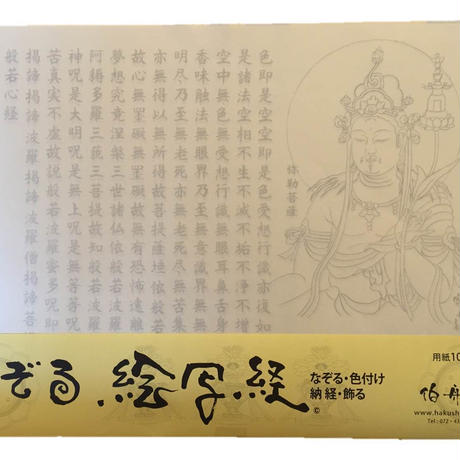 色即是空空即是色受想行識亦復如
是諸法空相不生不滅不垢不浄不増
空中無色無受想行識無眼耳鼻舌身
香味触法無眼界乃至無意識界無無
明尽乃至無老死亦無老死尽無苦集
亦無得以無所得故菩提薩埵依般若
故心無罣礙無罣礙故無有恐怖遠離
夢想究竟涅槃三世諸仏依般若波羅
阿耨多羅三藐三菩提故知般若波羅
神呪是大明呪是無上呪是無等等呪
苦真実不虚故説般若波羅蜜多呪
揭諦揭諦波羅揭諦波羅僧揭諦菩
般若心経
弥勒菩薩
ぞる 絵写経
©
なぞる・色付け
納経・飾る
用紙10
伯舟
www.hakush
Tel : 072 - 43